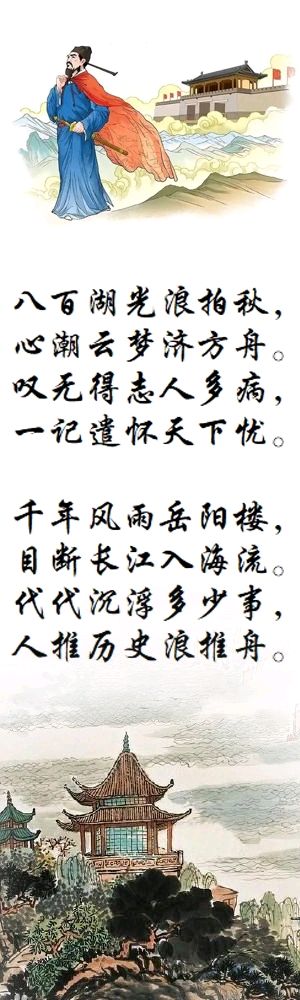 八百湖光浪拍秋，
心潮云梦济方舟。
叹无得志人多病，
一记遣怀天下忧。
千年风雨岳阳楼，
目断长江入海流。
代代沉浮多少事，
人推历史浪推舟。